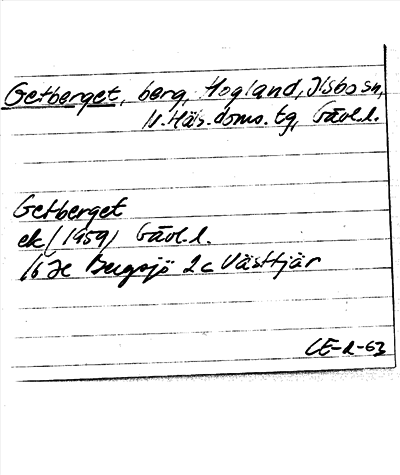 Getberget, berg, Hogland, Ilsbo sn,
N. Häls. doms. tg, Gävl. l.
Getberget
ek (1959) Gävl. l.
16 H Bergsjö 2 c Västtjär
CE-R-63